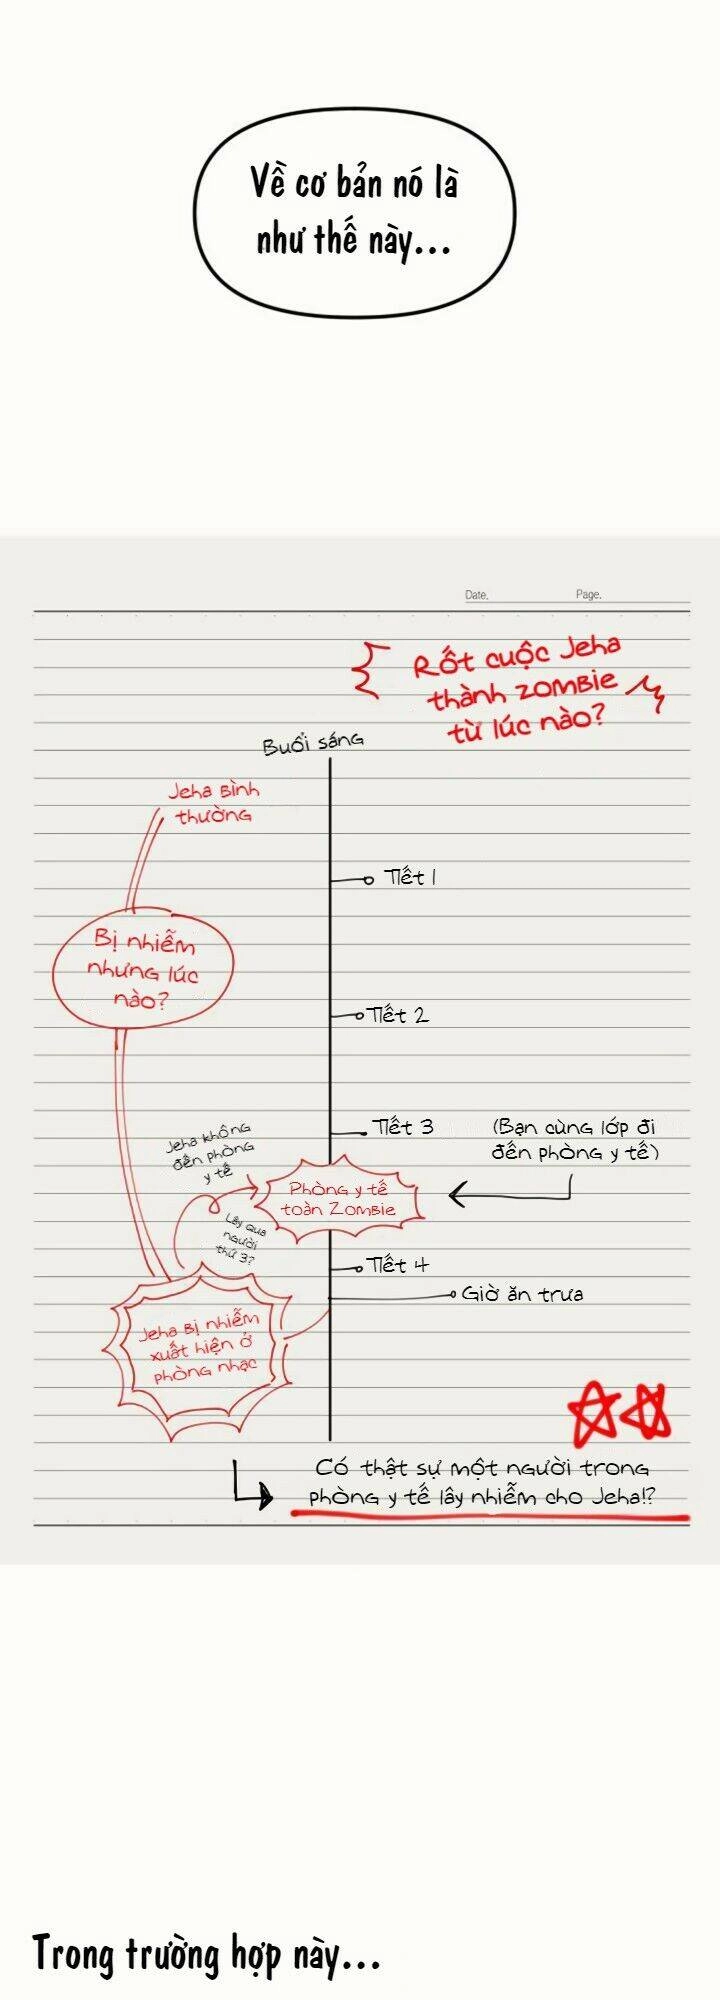 Về cơ bản nó là
như thế này...
Date.
Page.
Rốt cuộc Jeha
thành zombie
từ lúc nào?
Buổi sáng
Jeha Bình
thường
Tiết 1
Bị nhiễm
nhưng lúc
nào?
Tiết 2
Tiết 3
(Bạn cùng lớp đi
đến phòng y tế)
Jeha không
đến phòng
y tế
Phòng y tế
toàn Zombie
Lây qua
người
thứ 3?
Tiết 4
Giờ ăn trưa
Jeha Bị nhiễm
xuất hiện ở
phòng nhạc
Có thật sự một người trong
phòng y tế lây nhiễm cho Jeha!?
Trong trường hợp này...